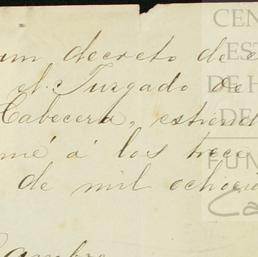 un decreto de
el Juzgado de
Cabecera, extiend
mé á los trece
de mil ochoci
CEN
EST
DE H
DE
FUN
Ca